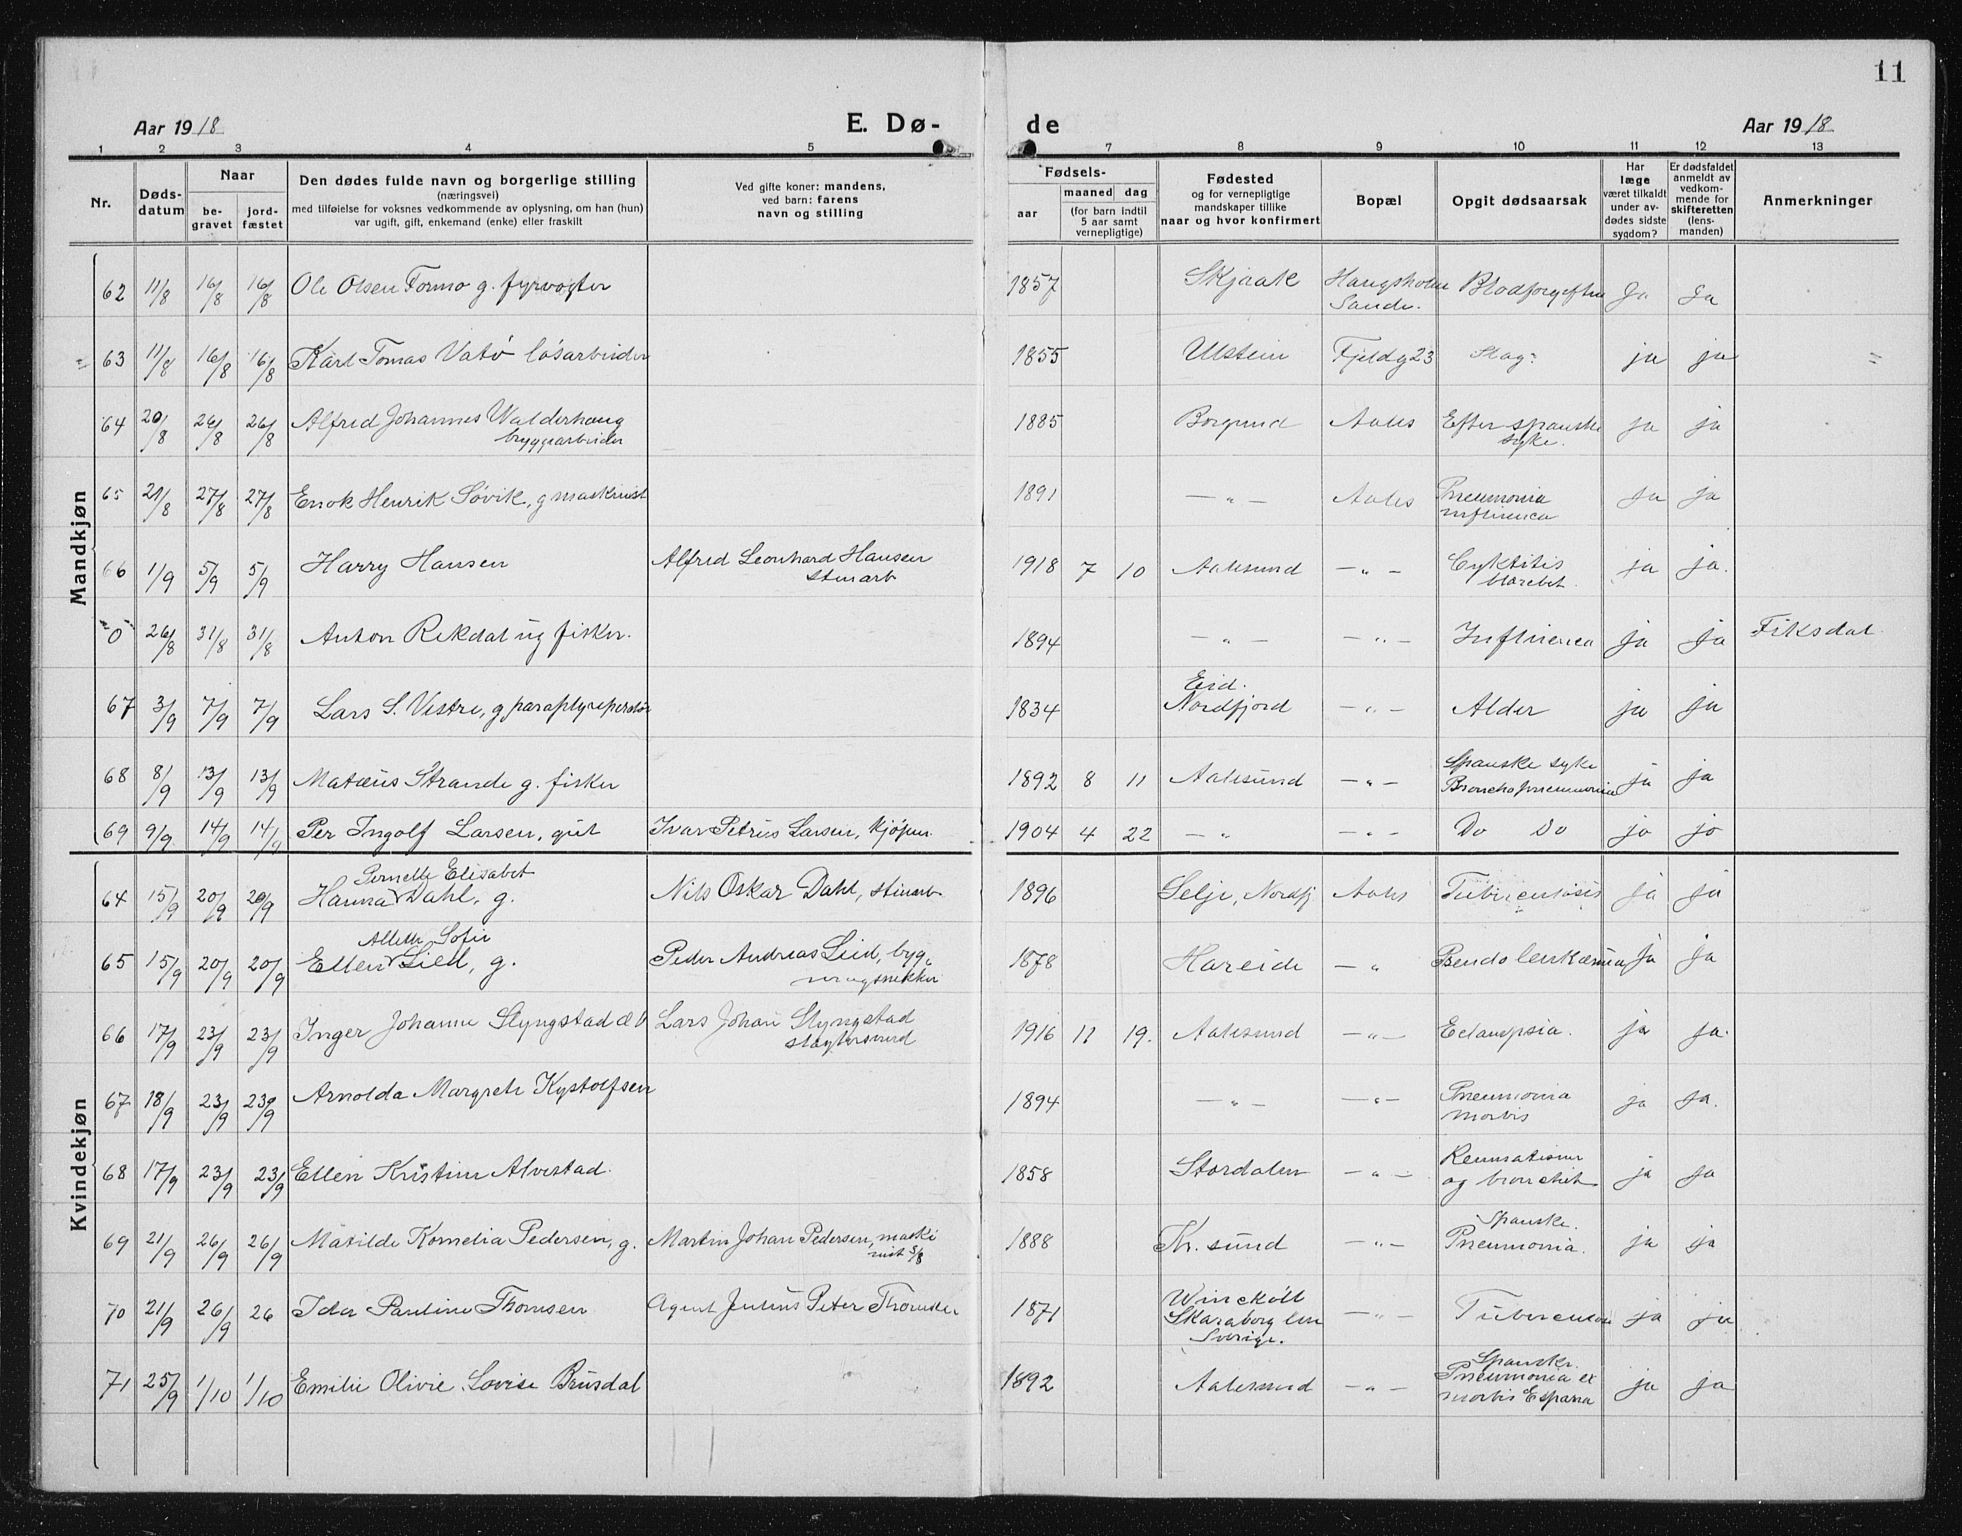 11
Aar 1918 E. Dø- de Aar 1918
1 2 3 4 5 7 8 9 10 11 12 13
Nr.
Døds-
datum
Naar
be-
gravet
jord-
fæstet
Den dødes fulde navn og borgerlige stilling
(næringsvei)
med tilføielse for voksnes vedkommende av oplysning, om han (hun)
var ugift, gift, enkemand (enke) eller fraskilt
Ved gifte koner: mandens,
ved barn: farens
navn og stilling
Fødsels-
aar
maaned dag
(for barn indtil
5 aar samt
vernepligtige)
Fødested
og for vernepligtige
mandskaper tillike
naar og hvor konfirmert
Bopæl
Opgit dødsaarsak
Har
læge
været tilkaldt
under av-
dødes sidste
sygdom?
Er dødsfaldet
anmeldt av
vedkom-
mende for
skifteretten
(lens-
manden)
Anmerkninger
Mandkjøn
62 11/8 16/8 16/8 Ole Olsen Formo g. fyrvogter 1857 Skjaak Haugsholm Sande. Blodforgiftn Ja Ja
63 11/8 16/8 16/8 Karl Tomas Vatø løsarbeider 1855 Ulstein Fjeldg 23 Slag ja ja
64 20/8 26/8 26/8 Alfred Johannes Walderhaug 1885 Borgund Aales Efter spanske ja ja
bryggearbeider syke.
65 21/8 27/8 27/8 Enok Henrik Søvik, g maskinist 1891 — " — Aales Pneumonia Ja ja
influenca
66 1/9 5/9 5/9 Harry Hansen Alfred Leonhard Hansen 1918 7 10 Aalesund — " — ja ja.
stenarb
0 26/8 31/8 31/8 Anton Rekdal ug fisker. 1894 — " — — " — Influenca ja ja Fiksdal.
67 3/9 7/9 7/9 Lars S. Vestre, g paraplyreperatør 1834 Eid. Nordfjord — " — Alder ja ja
68 8/9 13/9 13/9 Matæus Strande g. fisker 1892 8 11 Aalesund — " — Spanske syke ja ja
Bronchopneumonia
69 9/9 14/9 14/9 Per Ingolf Larsen, gut Ivar Petrus Larsen, kjøpm. 1904 4 22 — " — " — Do Do ja ja
Kvindekjøn
Pernelle Elisabet
64 15/9 20/9 20/9 Hanna Dahl, g. Nils Oskar Dahl, stenarb 1896 Selje, Nordfj Aales Tuberculosis ja ja
Alette Sofie
65 15/9 20/9 20/9 Ellen Lied, g. Peder Andreas Lied, byg- 1878 Hareide — " Pseudo leukæmia Ja ja
ningsnekker
66 17/9 23/9 23/9 Inger Johanne Slyngstad Lars Johan Slyngstad 1916 11 19. Aalesund — " — Eclampsia. ja ja.
slagtersvend
67 18/9 23/9 23/9 Arnolda Margrete Kystolfsen 1894 — " — — " — Pneumonia ja Ja.
morbis
68 17/9 23/9 23/9 Ellen Kristine Alvestad. 1858 Stordalen — " — Reumatisme ja ja
og bronchit
69 21/9 26/9 26/9 Matilde Kornelia Pedersen, g. Martin Johan Pedersen, maski 1888 Kr. sund — " — Spanske. Pneumonia. ja ja
nist
70 21/9 26/9 26 Ida Pauline Thomsen Agent Jentius Peter Thomsen 1871 Winekøll — " — Tuberculose ja ja
Skaraborg len
Sverige.
71 25/9 1/10 1/10 Emilie Olivie Lovise Brusdal 1892 Aalesund — " — Spanske. ja ja
Pneumonia ex
morbis Espana